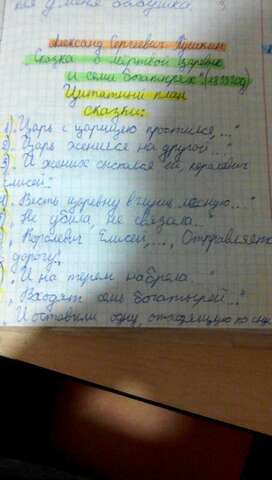 у меня бабушка.
Александр Сергеевич Пушкин
"Сказка о мёртвой царевне
и семи богатырях" (1833 год)
Цитатный план
сказки:
1) "Царь с царицею простился..."
2) "Царь женился на другой..."
3) "И жених сыскался ей, королевич
Елисей."
"Весть царевну в глушь лесную..."
"Не убила, не связала..."
"Королевич Елисей, ..., Отправляется
дорогу."
"И на терем набрела."
"Входят семь богатырей..."
И оставили одну, отходящую ко сну